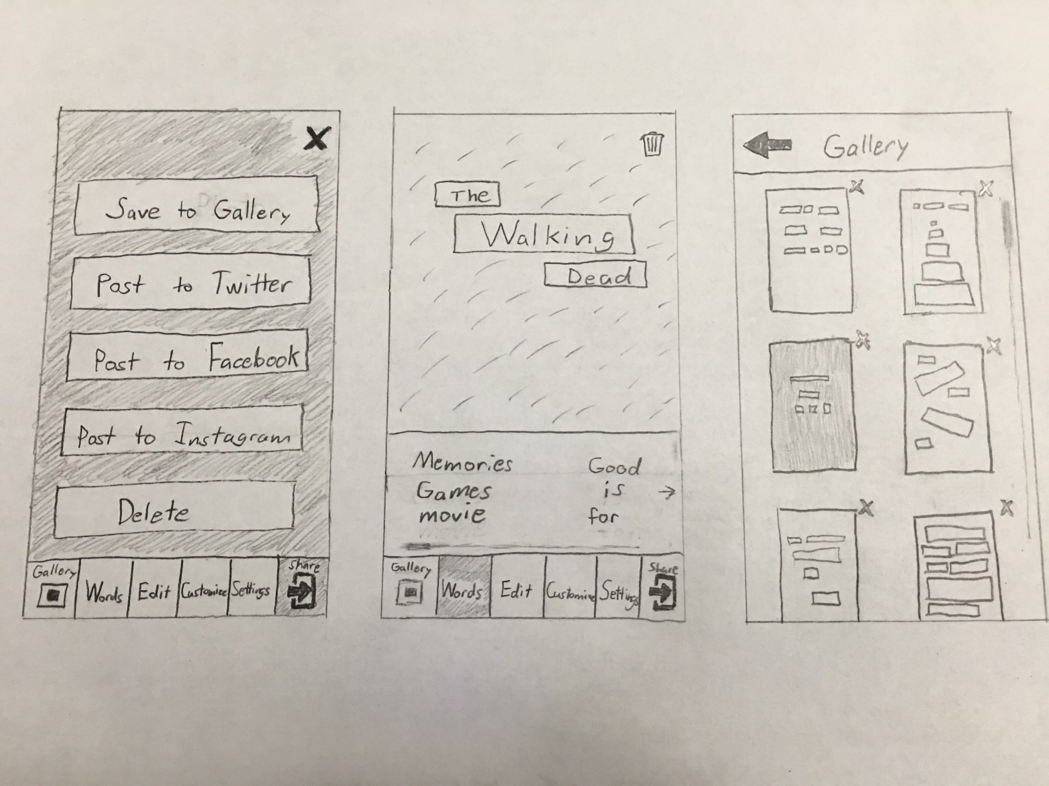 Save to Gallery
Post to Twitter
Post to Facebook
Post to Instagram
Delete
Gallery
Words
Edit
Customize
Settings
Share
The
Walking
Dead
Memories Good
Games is
movie for
Gallery
Words
Edit
Customize
Settings
Share
Gallery